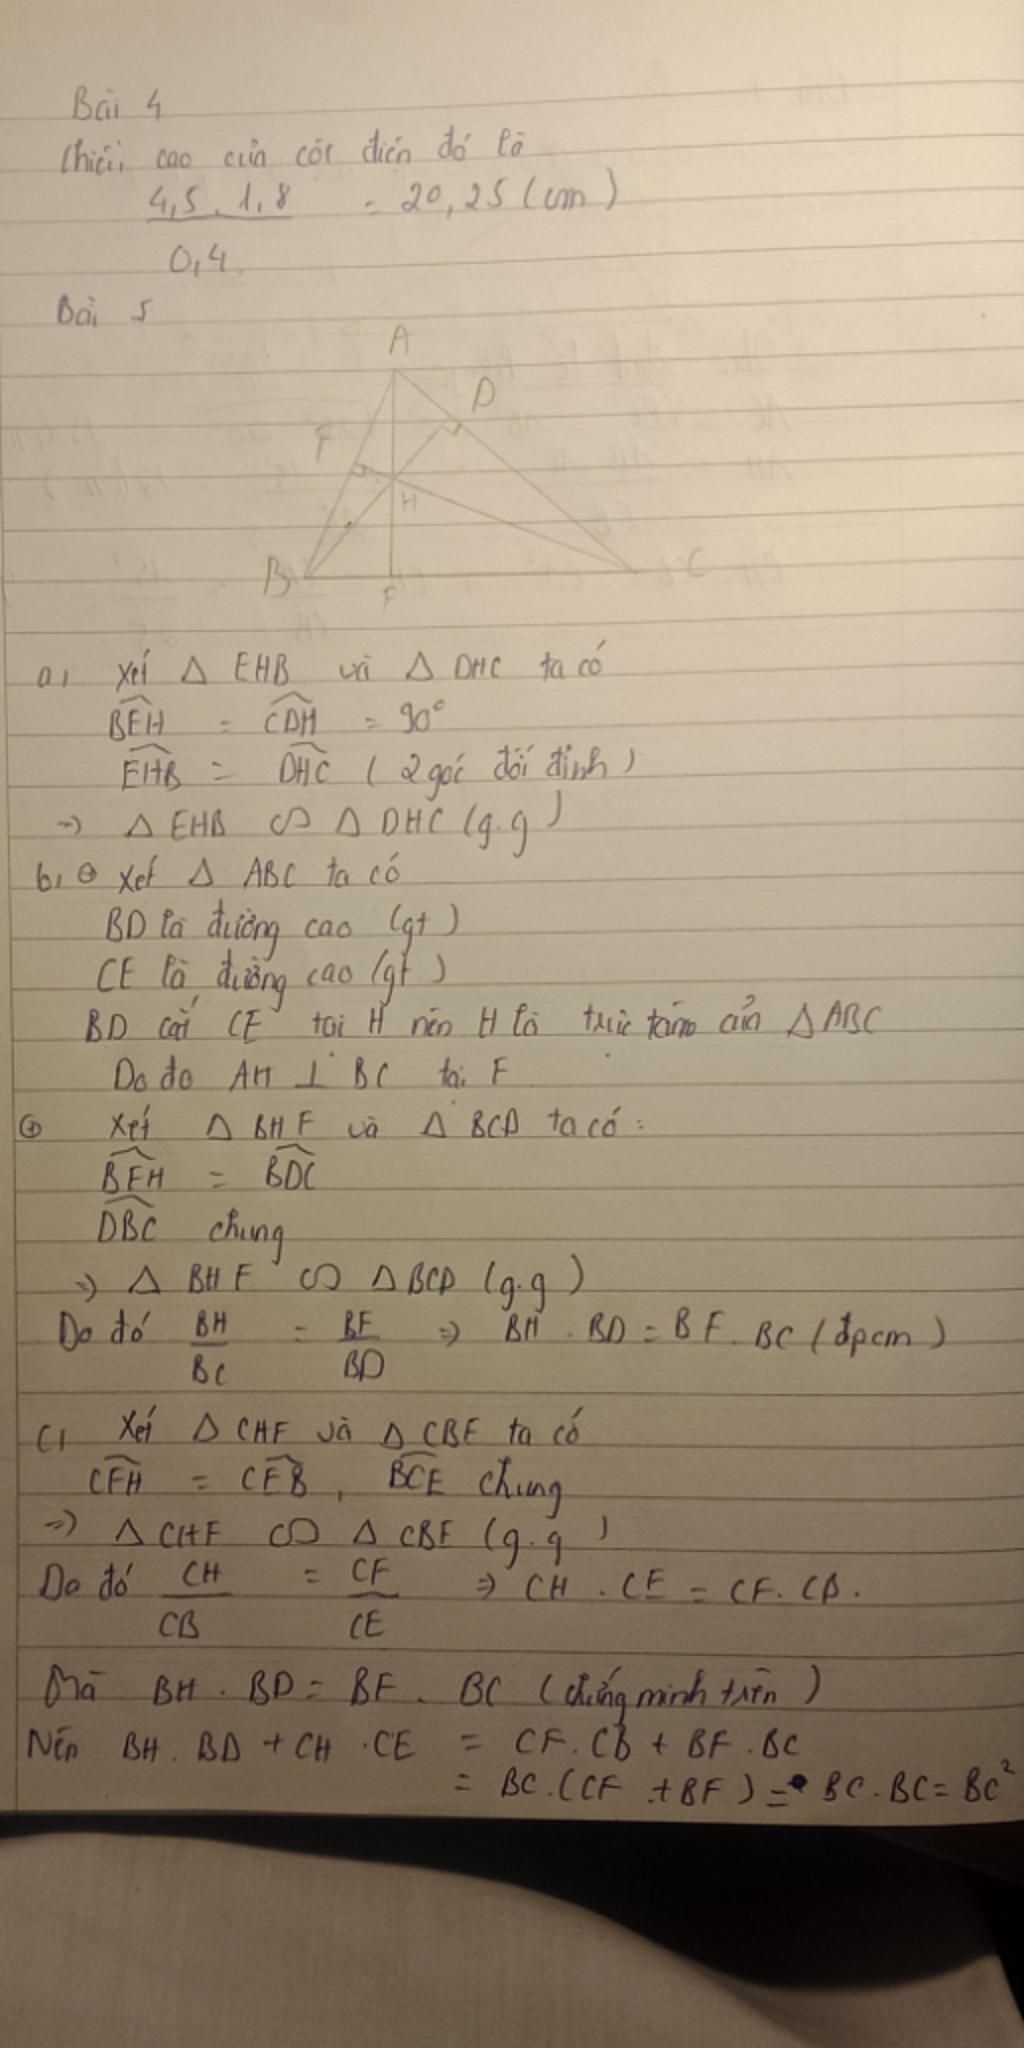 Bài 4
Chiều cao của cột điện đó là
4,5 . 1,8 = 20,25 (cm)
0,4
Bài 5
A
D
F
H
B
F
C
a, Xét Δ EHB và Δ DHC ta có
BEH = CDH = 90°
EHB = DHC ( 2 góc đối đỉnh )
=> Δ EHB ∽ Δ DHC (g.g)
b, ⊕ Xét Δ ABC ta có
BD là đường cao (gt)
CE là đường cao (gt)
BD cắt CE tại H nên H là trực tâm của Δ ABC
Do đo AH ⊥ BC tại F
⊕ Xét Δ BHF và Δ BCD ta có :
BFH = BDC
DBC chung
=> Δ BHF ∽ Δ BCD (g.g)
Do đó BH/BC = BF/BD => BH . BD = BF . BC (đpcm)
c, Xét Δ CHF và Δ CBE ta có
CFH = CEB , BCE chung
=> Δ CHF ∽ Δ CBE (g.g)
Do đó CH/CB = CF/CE => CH . CE = CF . CB .
Mà BH . BD = BF . BC (chứng minh trên)
Nên BH . BD + CH . CE = CF . CB + BF . BC
= BC . (CF + BF) = BC . BC = BC²